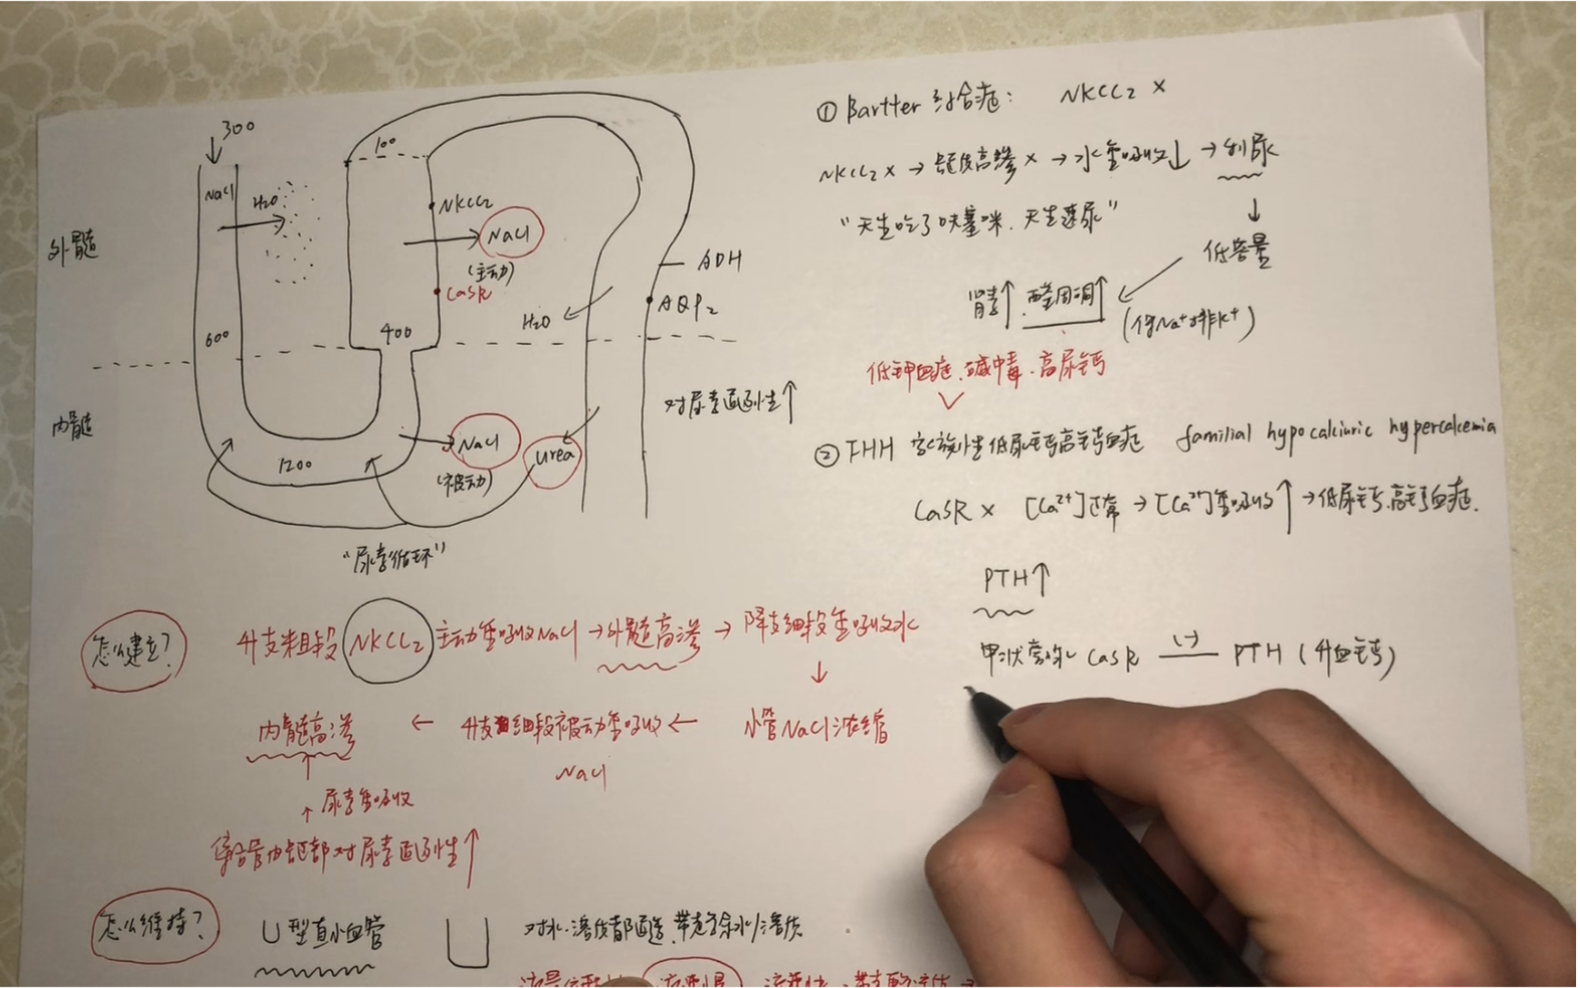 300
NaCl
H₂O
外髓
600
内髓
1200
100
NKCC₂
NaCl
(主动)
CaSR
400
NaCl
(被动)
urea
H₂O
ADH
AQP₂
对尿素通透性↑
“尿素循环”
怎么建立?
升支粗段 NKCC₂ 主动重吸收NaCl → 外髓高渗 → 降支细段重吸收水
↓
小管NaCl浓缩
← 升支细段被动重吸收 ←
NaCl
内髓高渗
↑ 尿素重吸收
集合管内髓部对尿素通透性↑
怎么维持?
U型直小血管
对水.溶质都通透,带走多余水/溶质
① Bartter 综合症: NKCC₂ ×
NKCC₂ × → 髓质高渗 × → 水重吸收↓ → 利尿
“天生吃了呋塞咪. 天生速尿”
↓
低容量
肾素↑. 醛固酮↑
(保Na⁺排K⁺)
低钾血症.碱中毒.高尿钙
② FHH 家族性低尿钙高钙血症 familial hypocalciuric hypercalcemia
CaSR × [Ca²⁺]正常 → [Ca²⁺]重吸收↑ → 低尿钙.高钙血症.
PTH↑
甲状旁腺 CaSR (-) PTH (升血钙)